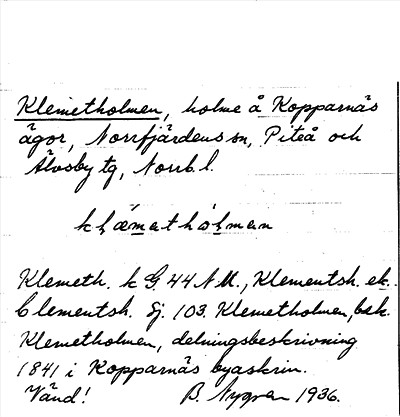 Klemetholmen, holme å Kopparnäs
ägor, Norrfjärdens sn, Piteå och
Älvsby tg, Norrb. l.
Klemeth. k G 44 A M., Klementsh. ek.
Clementsh. Sj. 103. Klemetholmen, bsk.
Klemetholmen, delningsbeskrivning
1841 i Kopparnäs byaskrin.
Vänd! B. Nygren 1936.